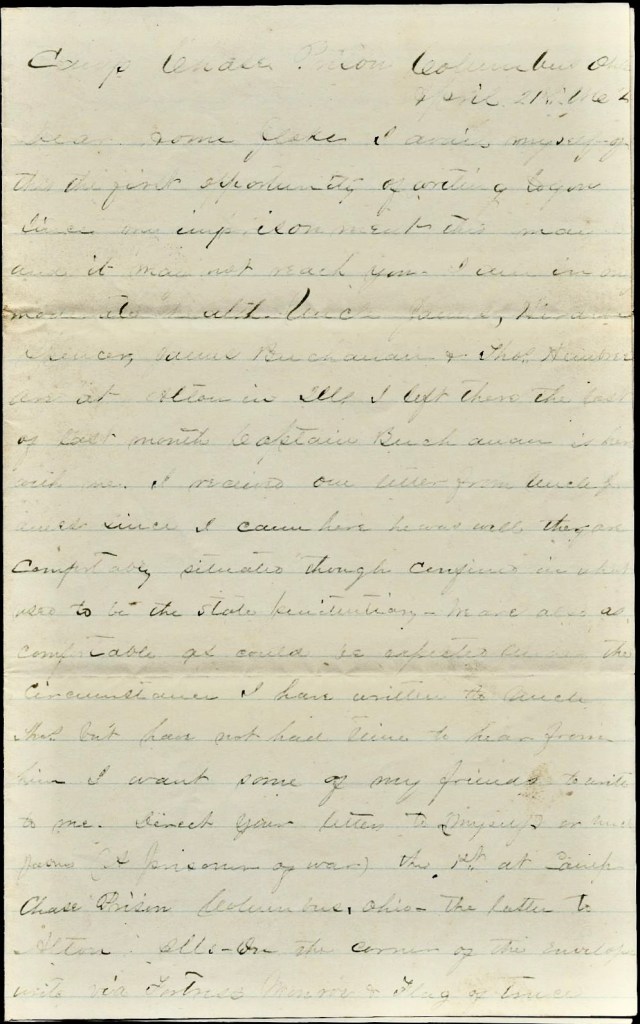 Camp Chase Prison Columbus Ohio
April 21st
Dear home folks I avail myself of
this the first opportunity of writing to you
since my imprisonment this may
and it may not reach you - I am in my
health. Uncle James,
James Buchanan & Thos.
are at Alton in Ills I left there the last
of last month Captain Buchanan is here
with me. I received one letter from Uncle J
since I came here he was well they are
comfortably situated though confined in what
used to be the State Penitentiary - We are also as
comfortable as could be expected under the
circumstances I have written to Uncle
but have not had time to hear from
him I want some of my friends to write
to me. Direct your letters to Myself or Uncle
James (A prisoner of war) the 1st. at Camp
Chase Prison Columbus, Ohio - the latter to
Alton Ills - On the corner of the envelope
write via Fortress Monroe & Flag of truce